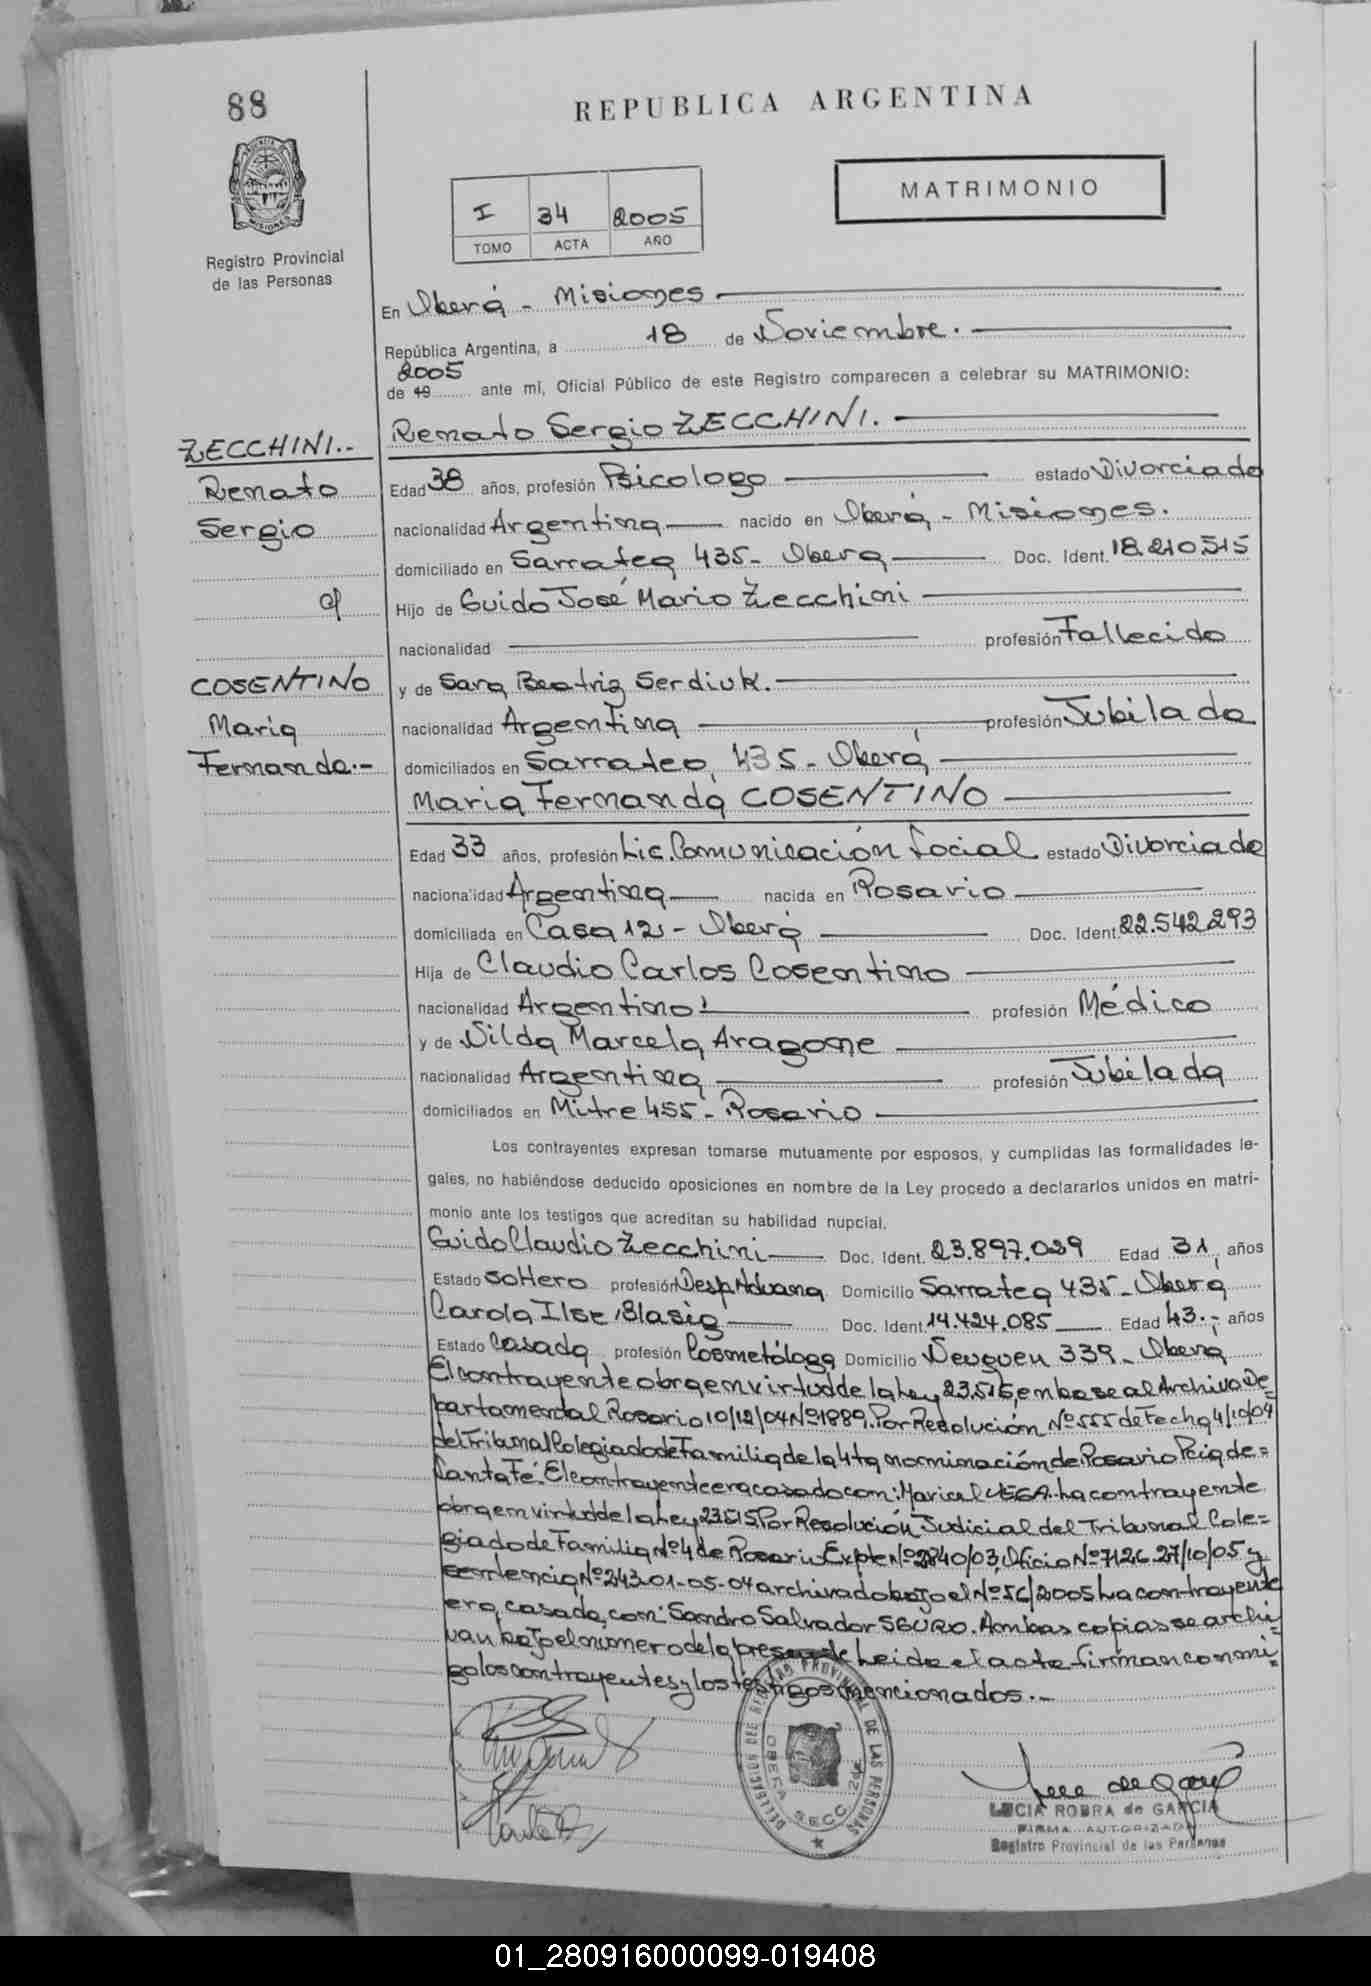 88
REPUBLICA ARGENTINA
MATRIMONIO
I 34 2005
TOMO ACTA AÑO
Registro Provincial
de las Personas
En Oberá - Misiones
República Argentina, a 18 de Noviembre.
2005
de 19 ante mí, Oficial Público de este Registro comparecen a celebrar su MATRIMONIO:
Renato Sergio ZECCHINI.
ZECCHINI.-
Renato
Sergio
c/
COSENTINO
Maria
Fernanda.-
Edad 38 años, profesión Psicologo estado Divorciado
nacionalidad Argentina nacido en Oberá - Misiones.
domiciliado en Sarratea 435- Obera Doc. Ident. 18.210515
Hijo de Guido José Mario Zecchini
nacionalidad profesión Fallecido
y de Sara Beatriz Serdiuk.
nacionalidad Argentina profesión Jubilada
domiciliados en Sarratea, 435- Oberá
Maria Fernanda COSENTINO
Edad 33 años, profesión Lic. Comunicación Social estado Divorciada
nacionalidad Argentina nacida en Rosario
domiciliada en Casa 12 - Oberá Doc. Ident. 22.542.293
Hija de Claudio Carlos Cosentino
nacionalidad Argentino profesión Médico
y de Nilda Marcela Aragone
nacionalidad Argentina profesión Jubilada
domiciliados en Mitre 455- Rosario
Los contrayentes expresan tomarse mutuamente por esposos, y cumplidas las formalidades le-
gales, no habiéndose deducido oposiciones en nombre de la Ley procedo a declararlos unidos en matri-
monio ante los testigos que acreditan su habilidad nupcial.
Guido Claudio Zecchini Doc. Ident. 23.897.039 Edad 31, años
Estado soltero profesión Desp Aduana Domicilio Sarratea 435- Oberá
Carola Ilse Blasig Doc. Ident. 14.424.085 Edad 43.- años
Estado Casada profesión Cosmetóloga Domicilio Neuquen 339- Obera
El contrayente obra en virtud de la Ley 23.515, en base al Archivo De=
partamental Rosario 10/12/04 Nº1889. Por Resolución Nº555 de Fecha 4/10/04
del Tribunal Colegiado de Familia de la 4ta nominación de Rosario Pcia de=
Santa Fé. El contrayente era casado con: Maricel VEGA. La contrayente
obra en virtud de la Ley 23.515 Por Resolución Judicial del Tribunal Cole=
giado de Familia Nº4 de Rosario Expte Nº2840/03, Oficio Nº7126 27/10/05 y
sentencia Nº243 01-05-04 archivado bajo el Nº56/2005 La contrayente
era casada con: Sandro Salvador SGURO. Ambas copias se archi
van bajo el número de la presente leida el acta firman conmi=
go los contrayentes y los testigos mencionados.-
DELEGACION DEL REGISTRO PROVINCIAL DE LAS PERSONAS
OBERA SECC. 2da
LUCIA ROBRA de GARCIA
FIRMA AUTORIZADA
Registro Provincial de las Personas
01_280916000099-019408